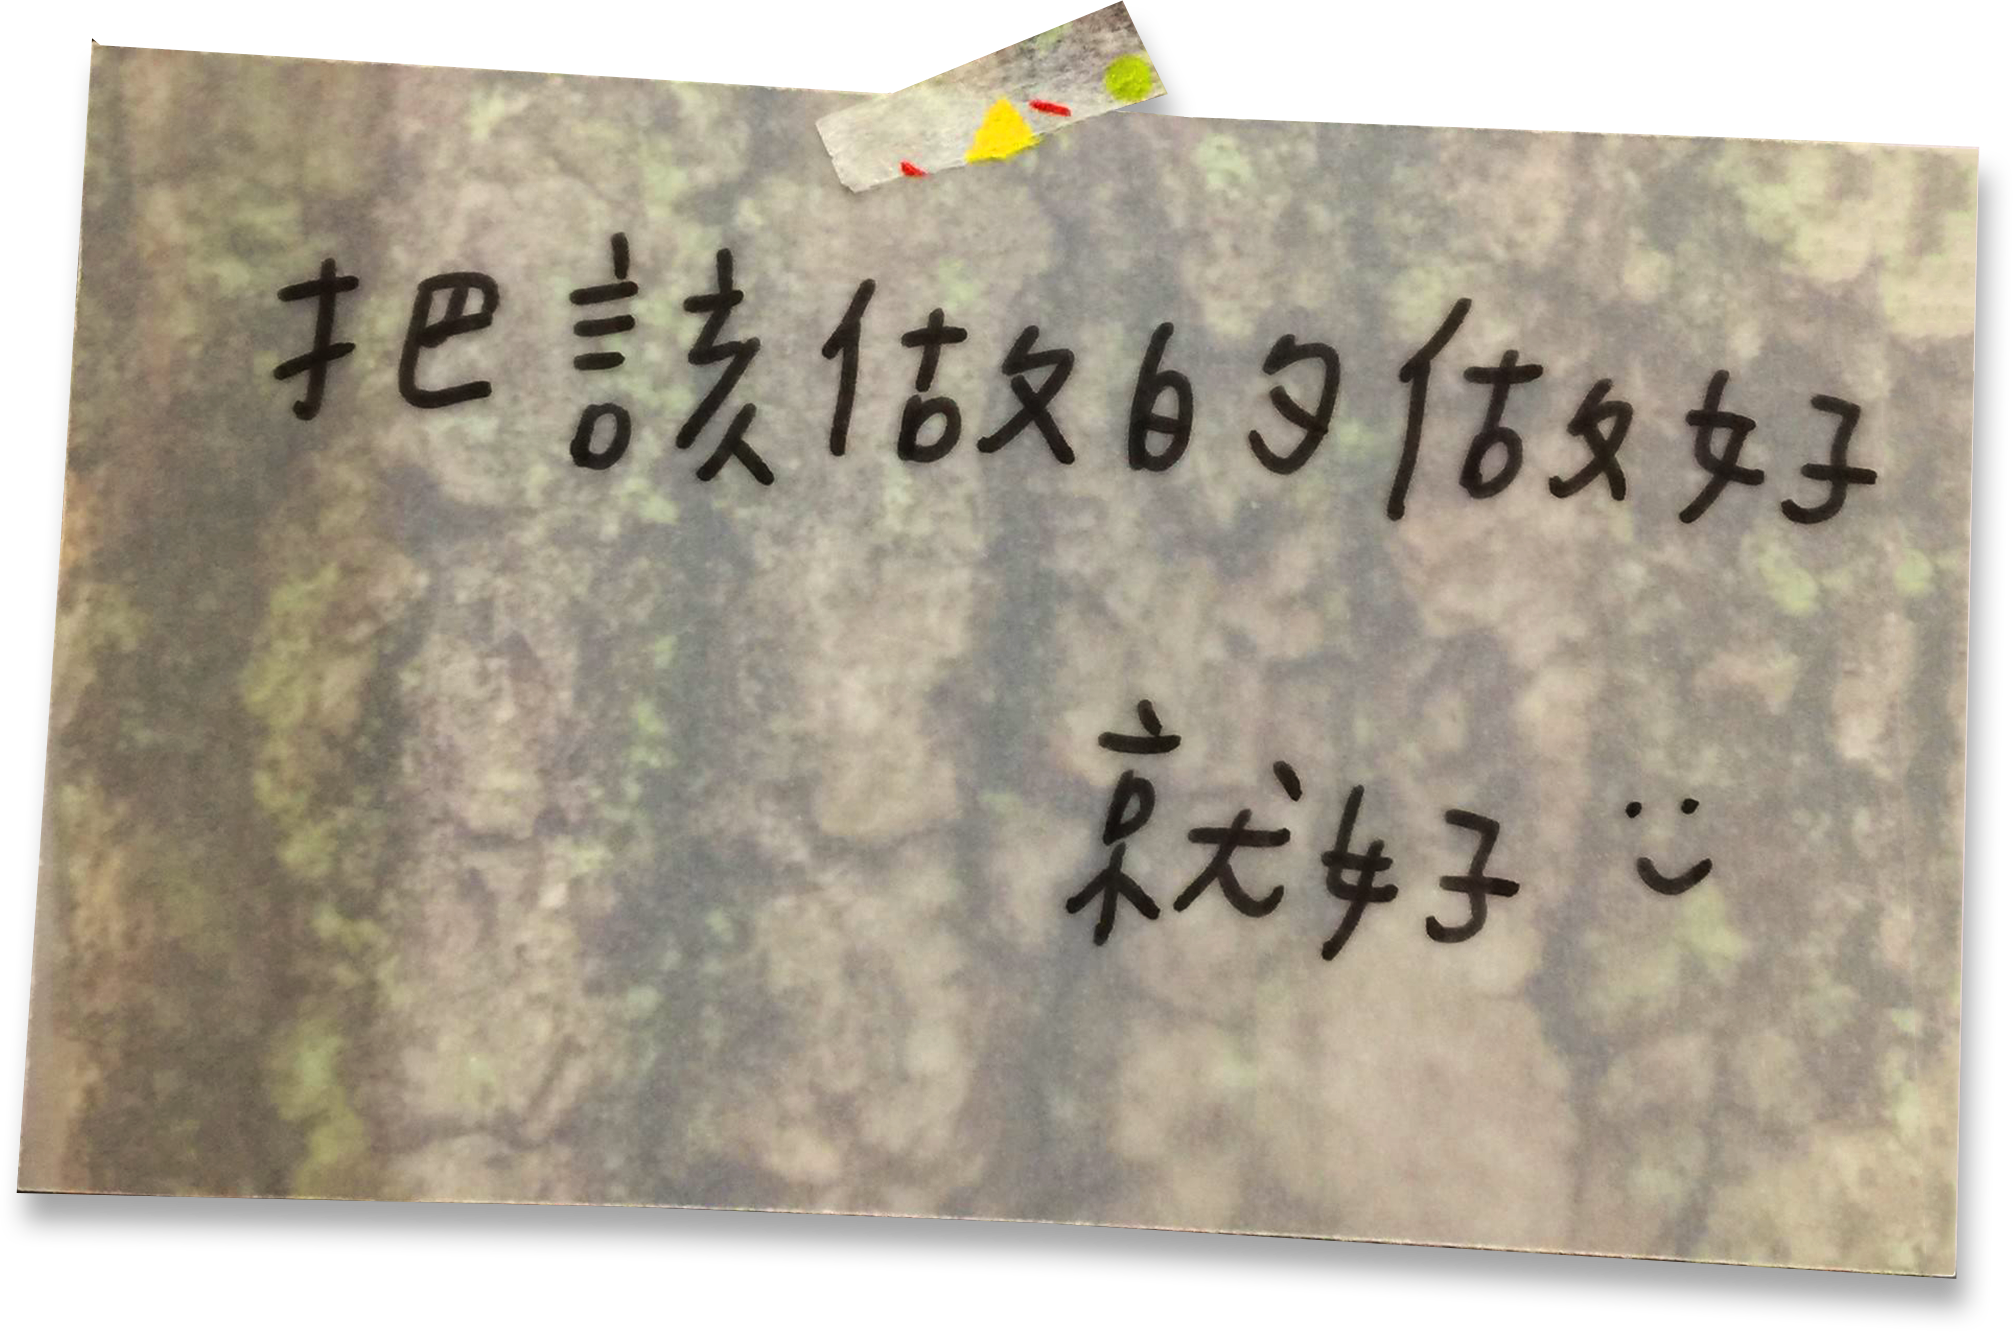 把該做的做好
就好 :)